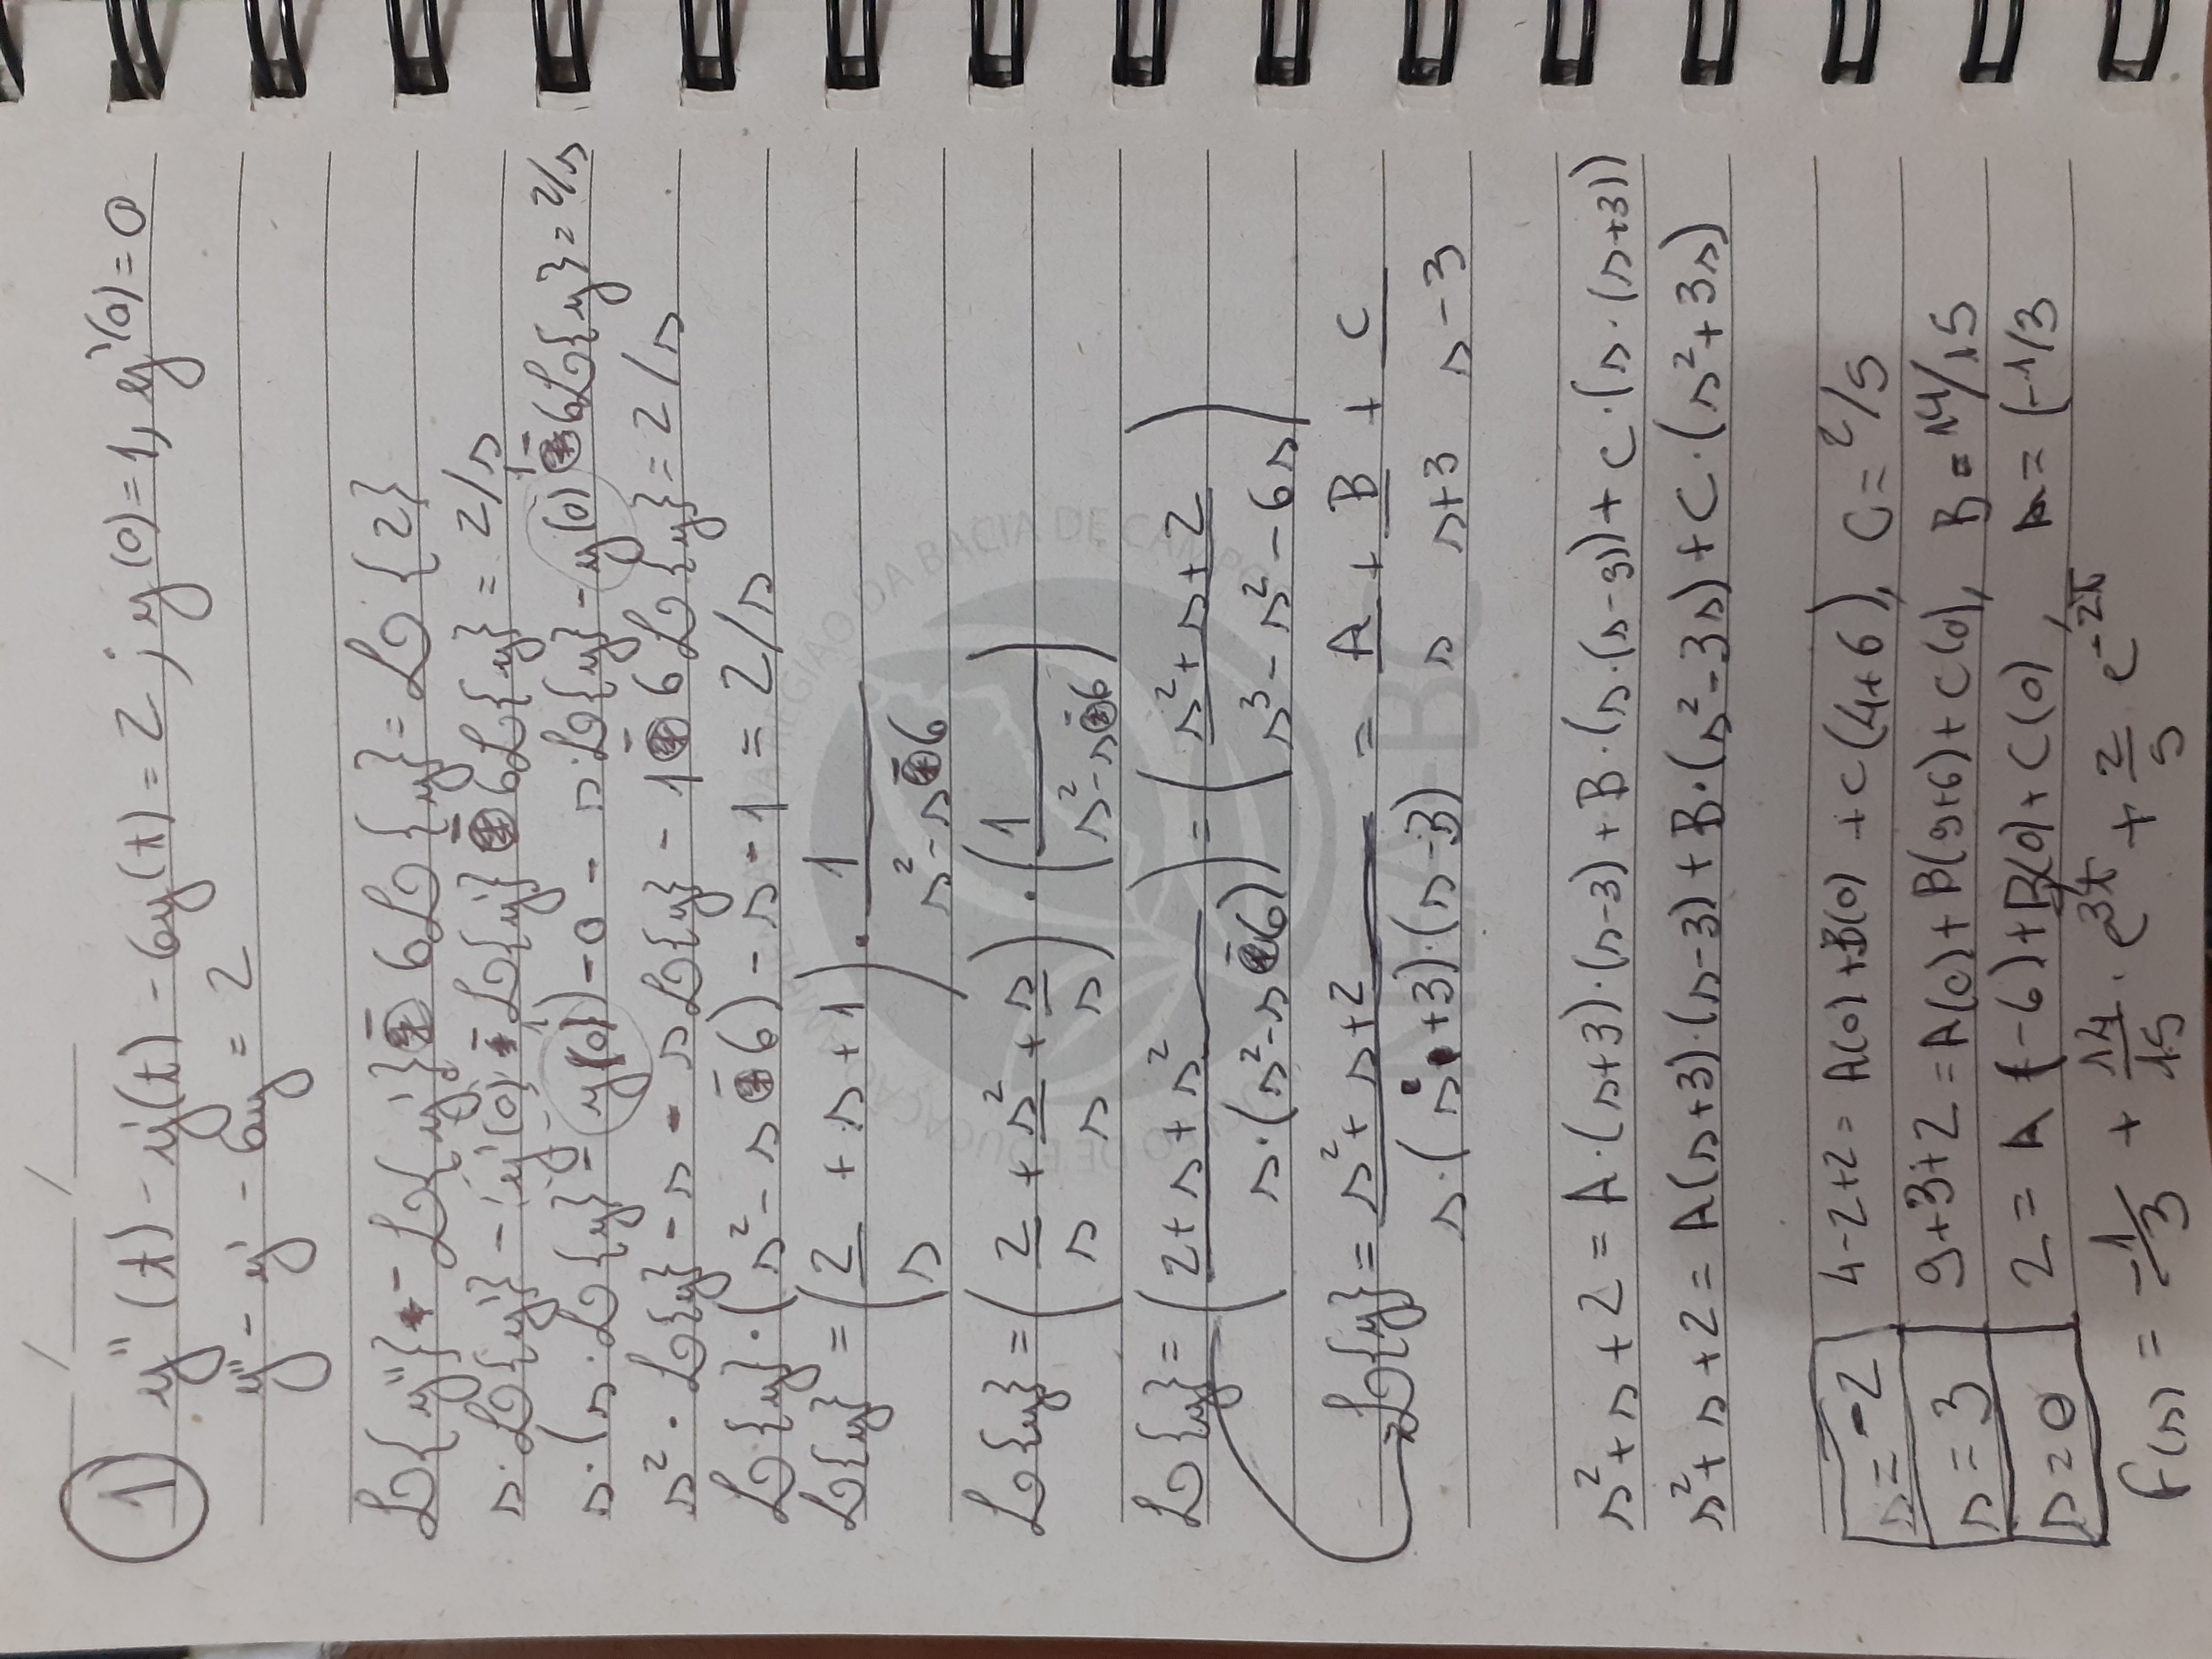 __/__/__
① y''(t) - y'(t) - 6y(t) = 2 ; y(0) = 1, y'(0) = 0
y'' - y' - 6y = 2
ℒ{y''} - ℒ{y'} - 6ℒ{y} = ℒ{2}
s·ℒ{y'} - y'(0) - ℒ{y'} - 6ℒ{y} = 2/s
s·(s·ℒ{y} - y(0)) - 0 - s·ℒ{y} - y(0) - 6ℒ{y} = 2/s
s²·ℒ{y} - s - sℒ{y} - 1 - 6ℒ{y} = 2/s
ℒ{y}·(s² - s - 6) - s - 1 = 2/s
ℒ{y} = (2/s + s + 1) · 1/(s² - s - 6)
ℒ{y} = (2/s + s²/s + s/s) · (1/(s² - s - 6))
ℒ{y} = ((2 + s + s²)/(s·(s² - s - 6))) = ((s² + s + 2)/(s³ - s² - 6s))
ℒ{y} = (s² + s + 2)/(s·(s + 3)·(s - 3)) = A/s + B/(s+3) + C/(s-3)
s² + s + 2 = A·(s+3)·(s-3) + B·(s·(s-3)) + C·(s·(s+3))
s² + s + 2 = A(s+3)·(s-3) + B·(s² - 3s) + C·(s² + 3s)
s = -2 4-2+2 = A(0) + B(0) + C(4+6), C = 2/5
s = 3 9+3+2 = A(0) + B(9+6) + C(0), B = 14/15
s = 0 2 = A(-6) + B(0) + C(0), A = (-1/3
F(s) = -1/3 + 14/15 · e^3t + 2/5 e^-2t
NEA-BC